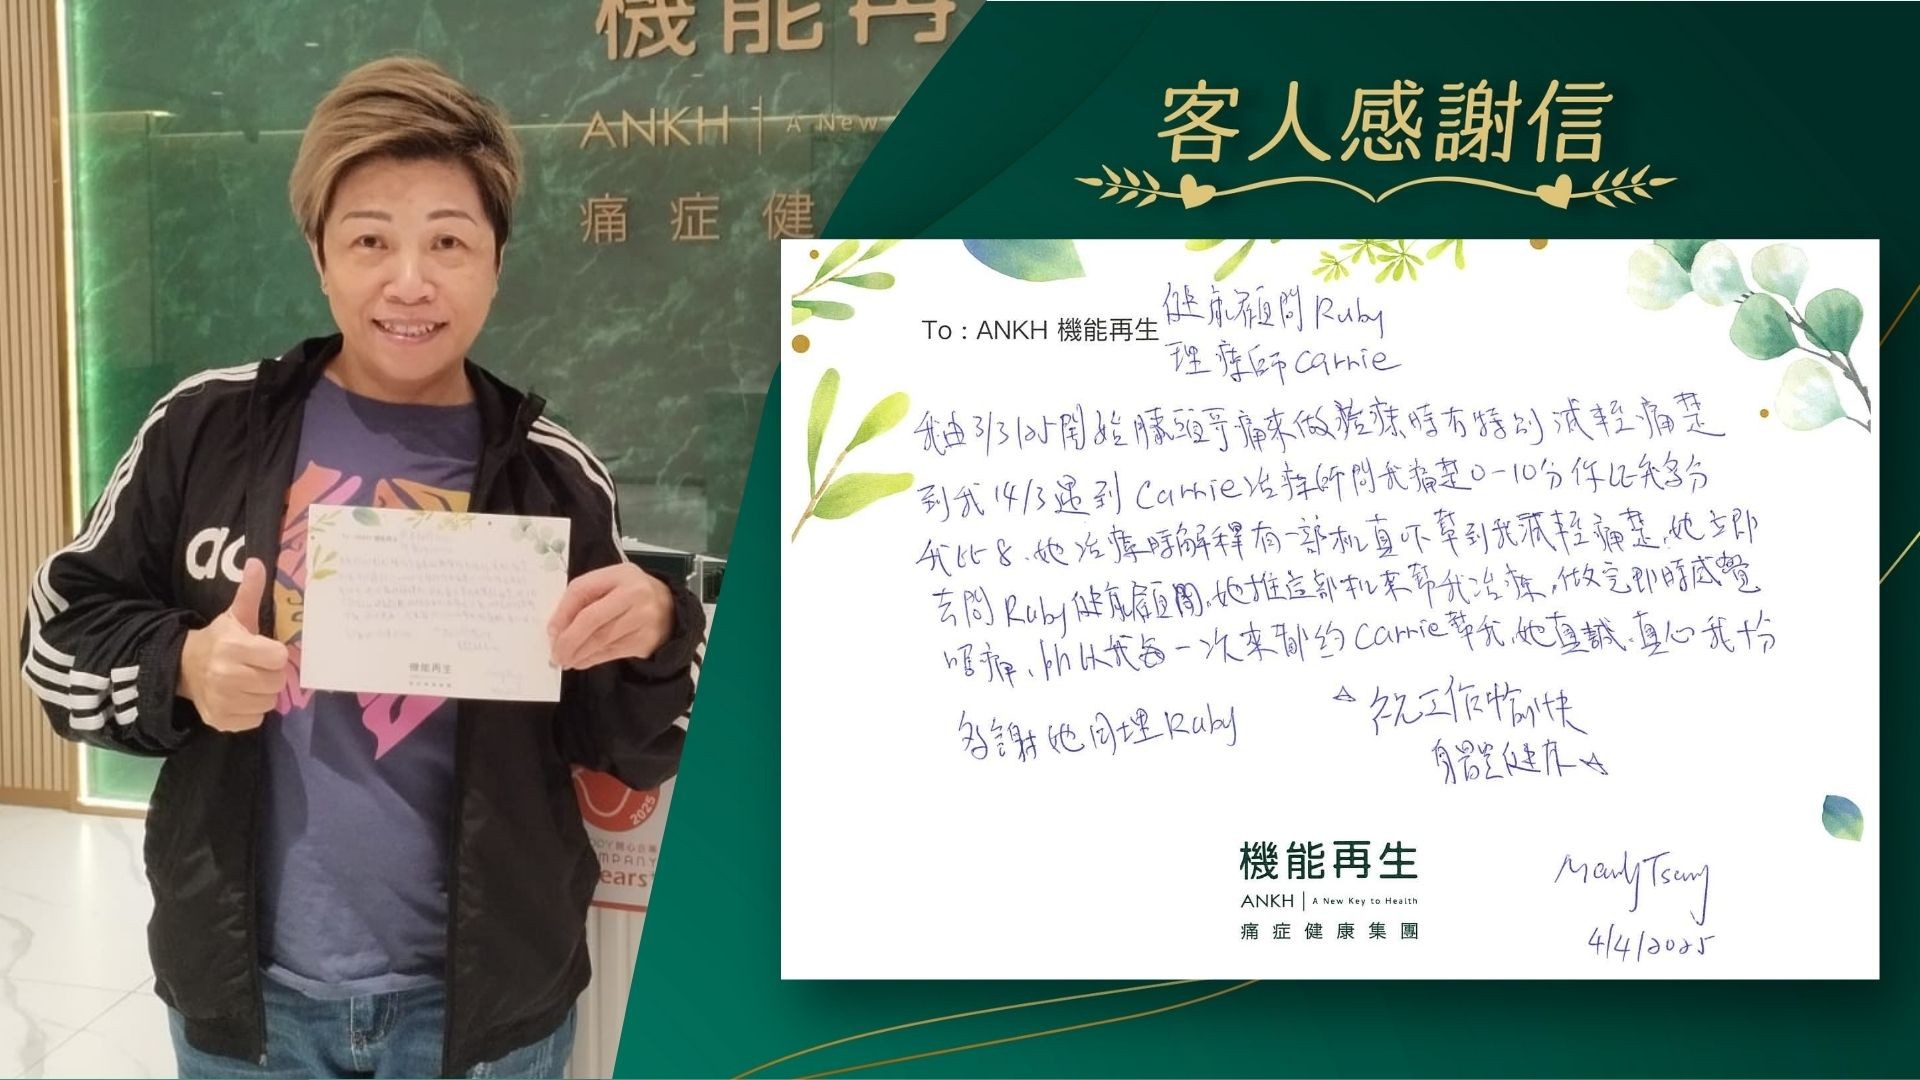 機能再
ANKH | A New
痛症健
客人感謝信
To : ANKH 機能再生 健康顧問 Ruby
理療師 Carnie
我由3/3/25開始膊頭骨痛來做治療時有特別減輕痛楚
到我14/3遇到Carnie治療師問我痛楚0-10分你比我多分
我比8、她治療時解釋有一部机真吓幫到我減輕痛楚,她立即
去問Ruby健康顧問,她推這部机來幫我治療,做完即時感覺
痛、所以我每一次來都約Carnie幫我,她真誠、真心我十分
多謝她同埋Ruby
☆祝工作愉快
身體健康☆
機能再生
ANKH | A New Key to Health
痛症健康集團
Mandy Tsang
4/4/2025
adi
To : ANKH 機能再生
機能再生
2025
COMPANY
ears+